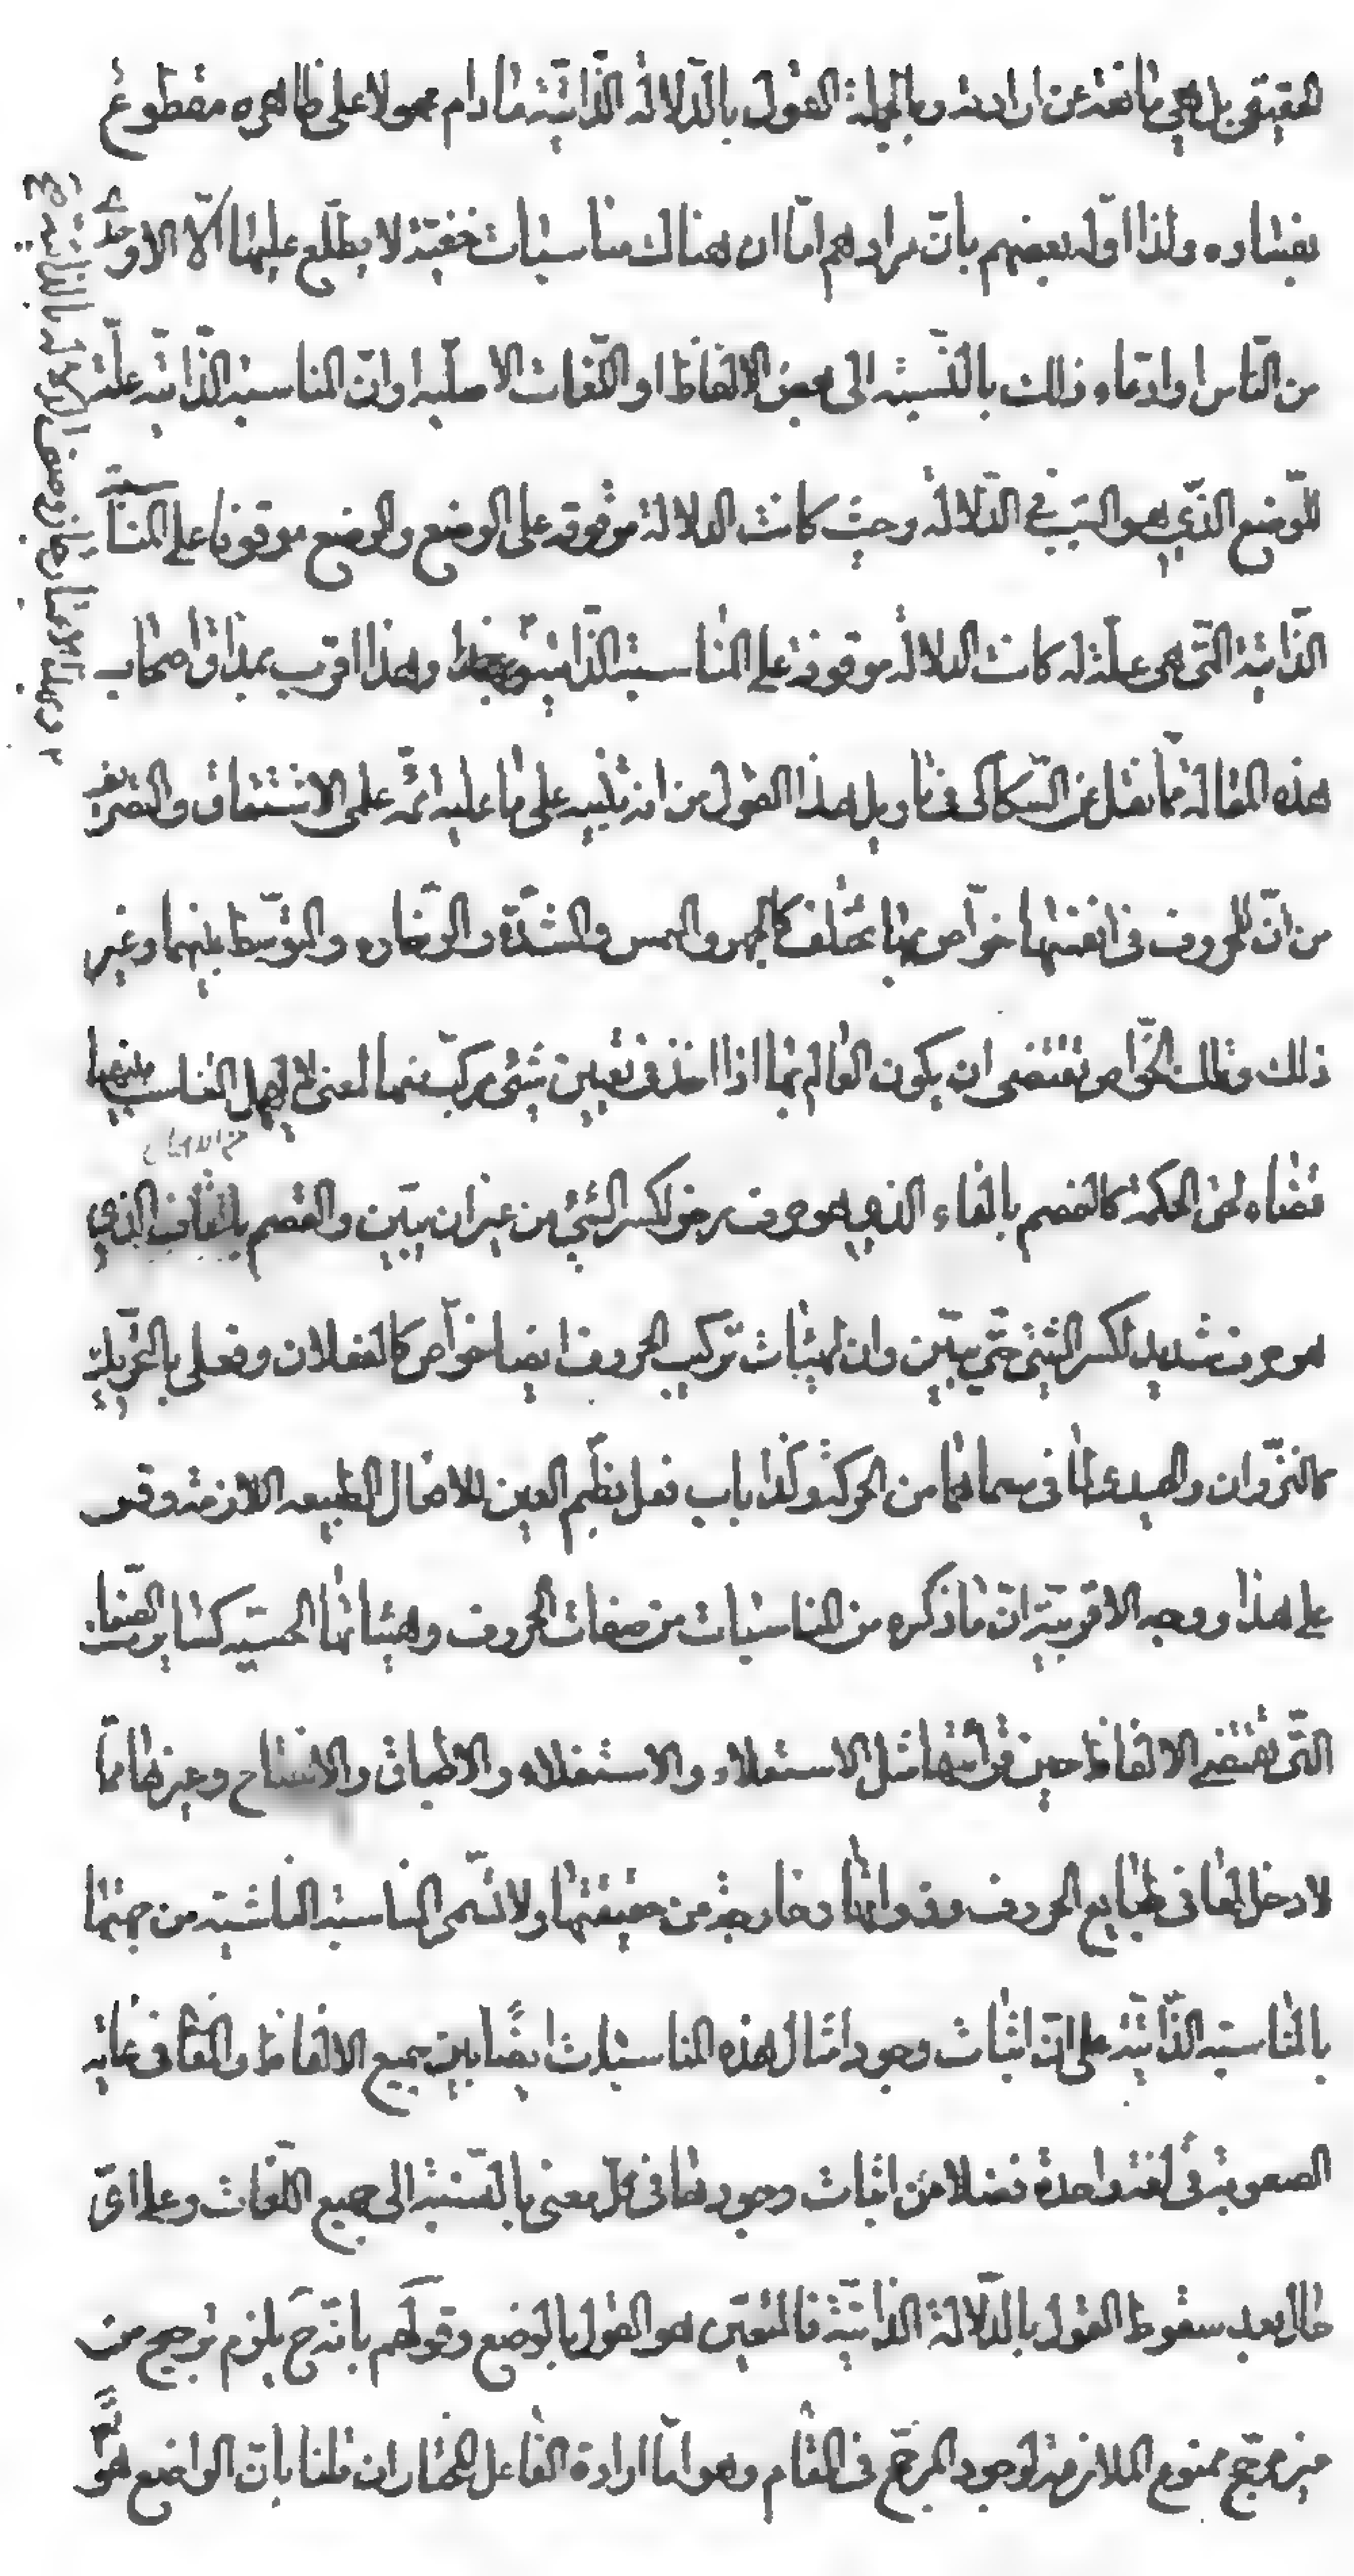 الحقيقي بل هي مانعة عن ارادته وبالجملة القول بالدّلالة الذّاتيّة مادام محمولا على ظاهره مقطوع
بفساده ولذا اوّله بعضهم بانّ مرادهم امّا ان هناك مناسبات خفيّة لا يطّلع عليها الّا الاوحدي
من النّاس او ادّعاء ذلك بالنّسبة الى بعض الالفاظ او اللّغات الاصليه او انّ المناسبة الذّاتيه علّة
للوضع الذّي هو السّبب في الدّلالة وحيث كانت الدلالة موقوفه على الوضع والوضع موقوفا على المناسبة
الذّاتية التّي هى علّة له كانت الدلالة موقوفة على المناسبة الذّاتية وهذا اقرب بمذاق اصحاب
هذه المقالة ممّا نقل عن السّكاكى فى تاويل هذا القول من انه تنبيه على ما عليه ائمّه علمى الاشتقاق والتصريف
من انّ للحروف فى انفسها خوّاص بها تختلف كالجهر والهمس والشّدّة والرّخاوه والتوّسط بينهما وغير
ذلك وتلك الخوّاص تقتضى ان يكون العالم بها اذا اخذ فى تعيين شئ مركّب منها لمعنى لا يهمل التناسب بينهما
قضاء لحق الحكمة كالفصم بالفاء الذي هو حرف رخو لكسر الشئ من غير ان يبين والقصم بالقاف الذي
هو حرف شديد لكسر الشئ حتّى يبين وان لهيئات تركيب الحروف ايضا خوّاص كالفعلان وفعلى بالتحريك
كالنزّوان والحيدى لما فى مسماهما من الحركة وكذا باب فعل بضّم العين للافعال الطبيعه اللازمة وقس
على هذا ووجه الاقربيّة انّ ما ذكره من المناسبات من صفات الحروف وهيئاتها الحسّيه كساير الصّفات
التّى تقتضى الالفاظ حين قرائتها مثل الاستعلاء والاستفلاء والاطباق والانفتاح وغيرها ممّا
لا دخل لها فى طبايع الحروف وذواتها وخارجة من حقيقتها ولا تسمّى المناسبة الناشئية من جهتها
بالمناسبه الذّاتيّة على انّ اثبات وجود امثال هذه المناسبات ايضًا بين جميع الالفاظ والمعاني فى غاية
الصعوبة فى لغة واحدة فضلا من اثبات وجودها فى كلّ معنى بالنّسبة الى جميع اللّغات وعلى اىّ
حال بعد سقوط القول بالدّلالة الذاتيّة فالمتعيّن هو القول بالوضع وقولهم بانّه ح يلزم ترجيح من
غير مرجّح ممنوع الملازمة لوجود المرجّح فى المقام وهو امّا ارادة الفاعل المختار ان قلنا بانّ الواضع هو